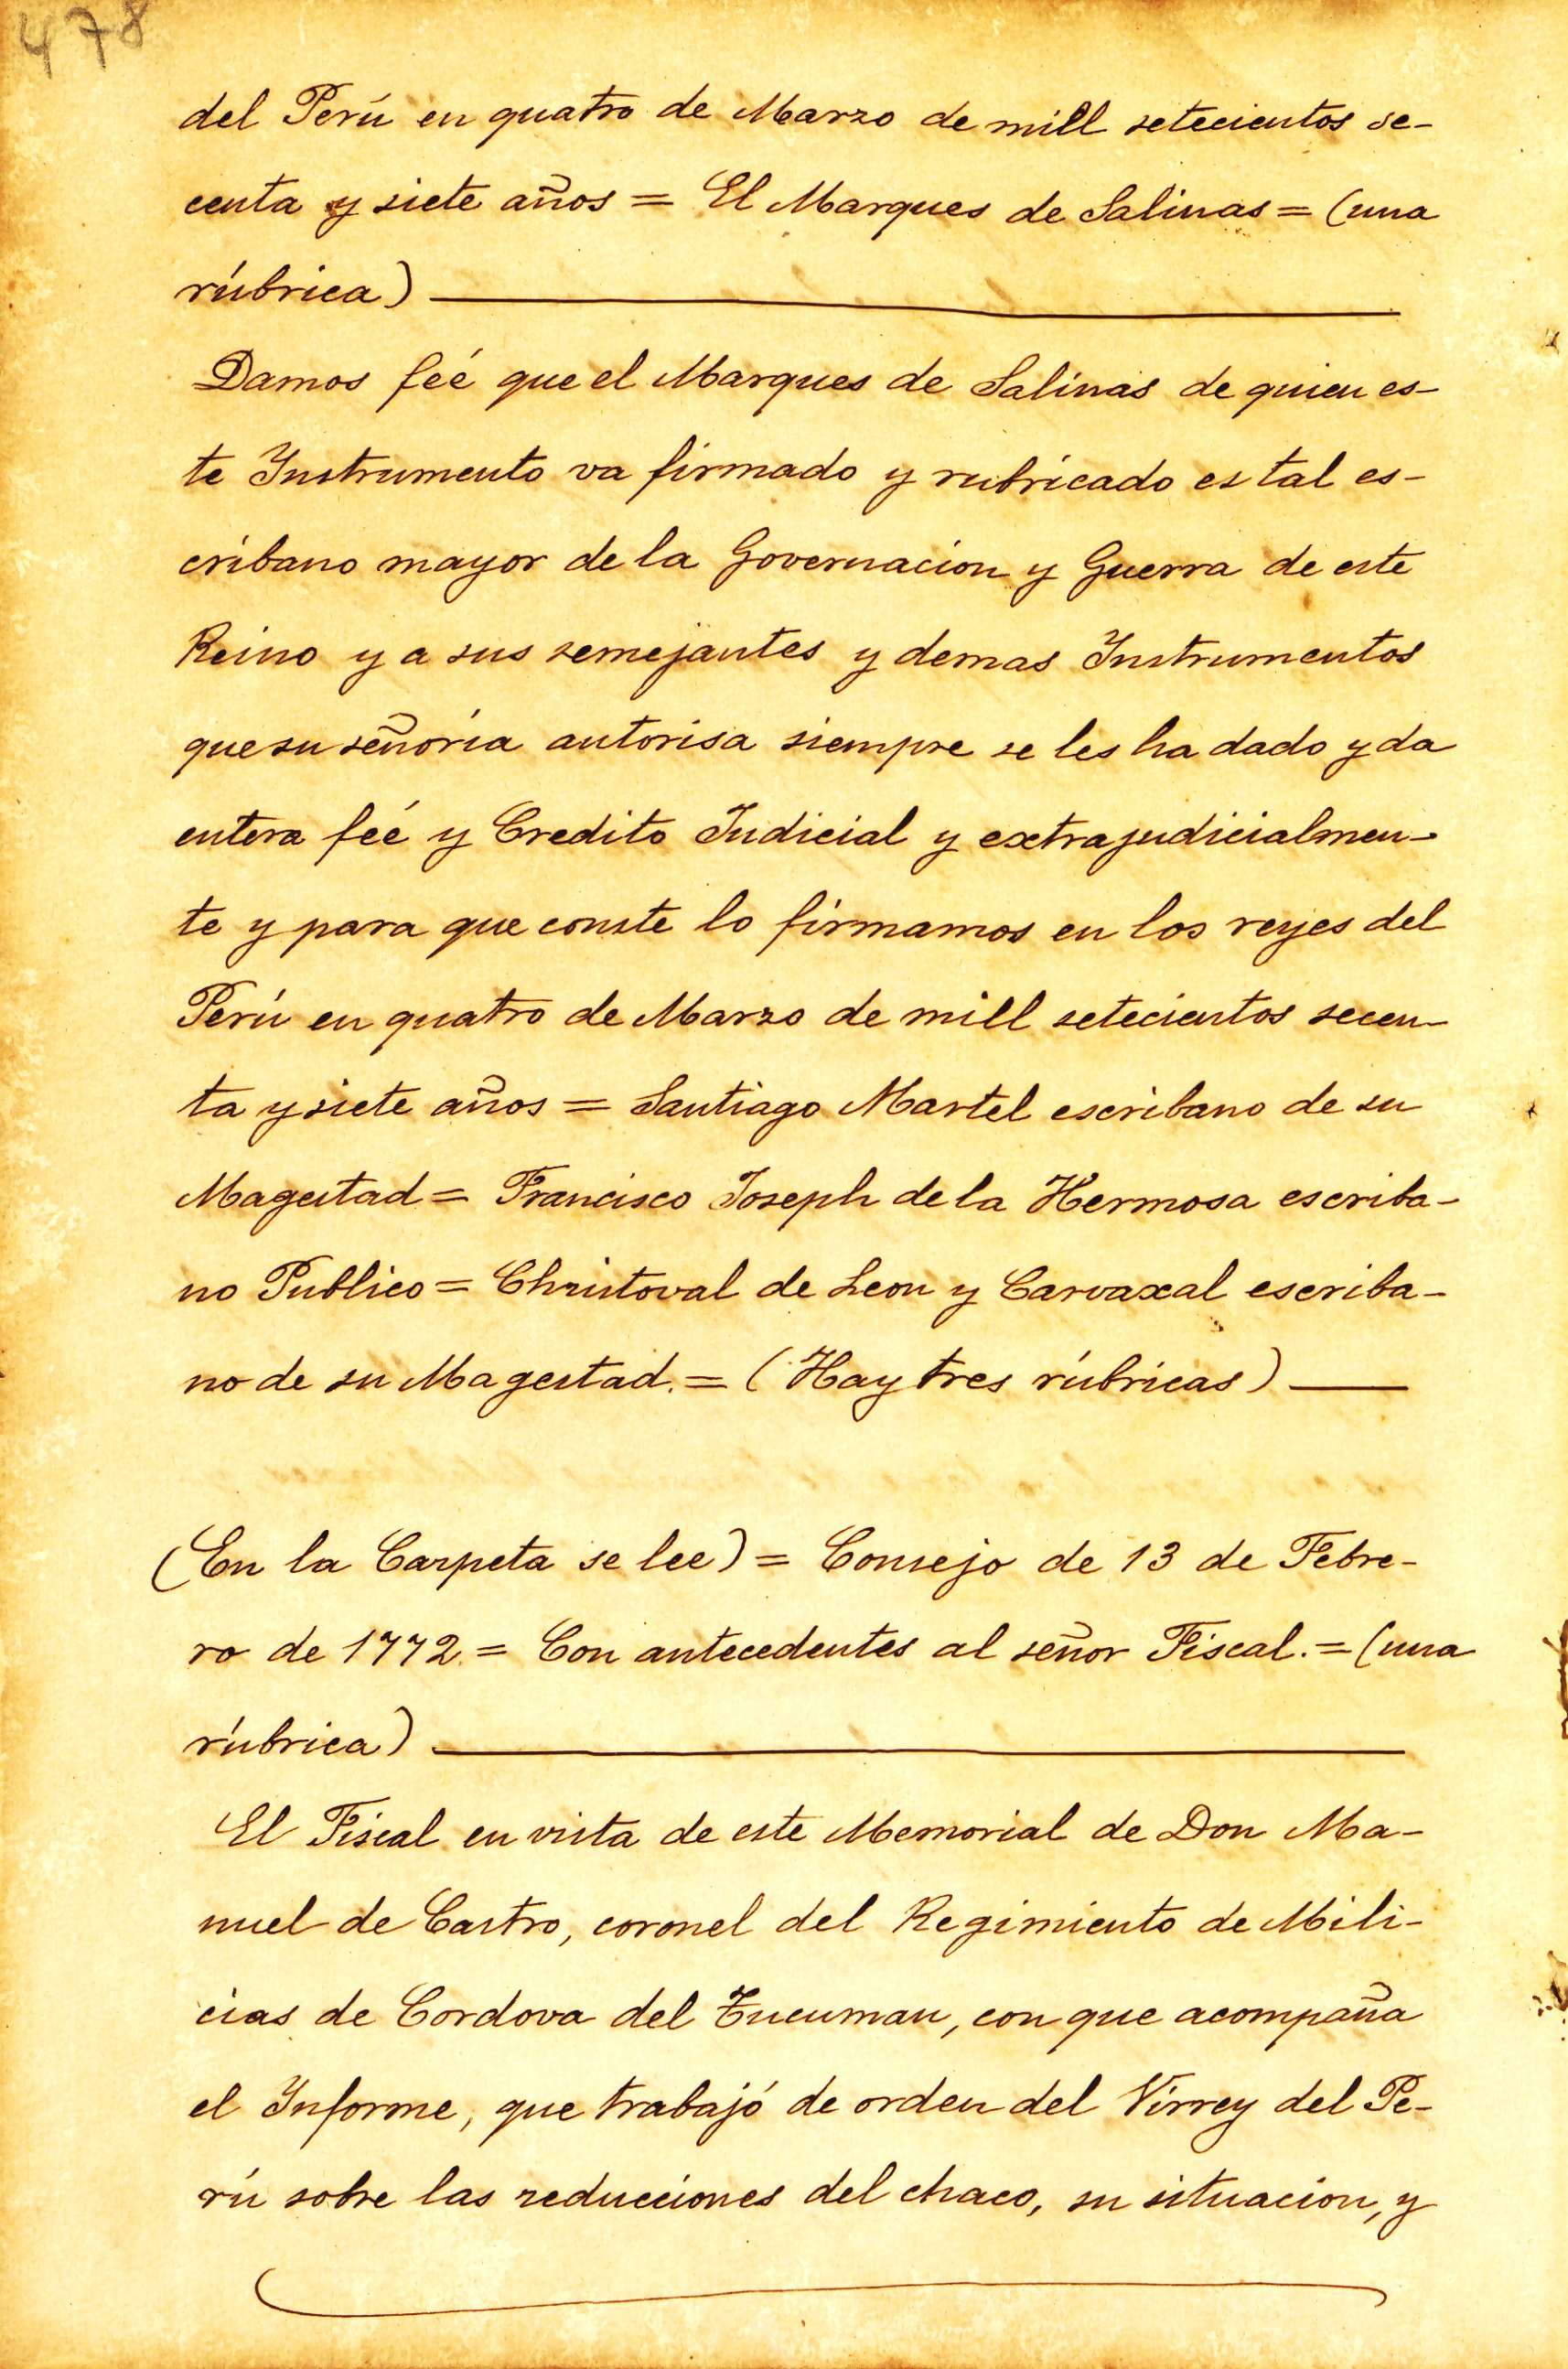 478
del Perú en quatro de Marzo de mill setecientos se-
centa y siete años = El Marques de Salinas = (una
rúbrica)
Damos feé que el Marques de Salinas de quien es-
te Instrumento va firmado y rubricado es tal es-
cribano mayor de la Governacion y Guerra de este
Reino y a sus semejantes y demas Instrumentos
que su señoría autorisa siempre se les ha dado y da
entera feé y Credito Judicial y extrajudicialmen-
te y para que conste lo firmamos en los reyes del
Perú en quatro de Marzo de mill setecientos secen-
ta y siete años = Santiago Martel escribano de su
Magestad = Francisco Joseph de la Hermosa escriba-
no Publico = Christoval de Leon y Carvaxal escriba-
no de su Magestad. = (Hay tres rúbricas)
(En la Carpeta se lee) = Consejo de 13 de Febre-
ro de 1772. = Con antecedentes al señor Fiscal. = (una
rúbrica)
El Fiscal en vista de este Memorial de Don Ma-
nuel de Castro, coronel del Regimiento de Mili-
cias de Cordova del Tucuman, con que acompaña
el Informe, que trabajó de orden del Virrey del Pe-
rú sobre las reducciones del chaco, su situacion, y